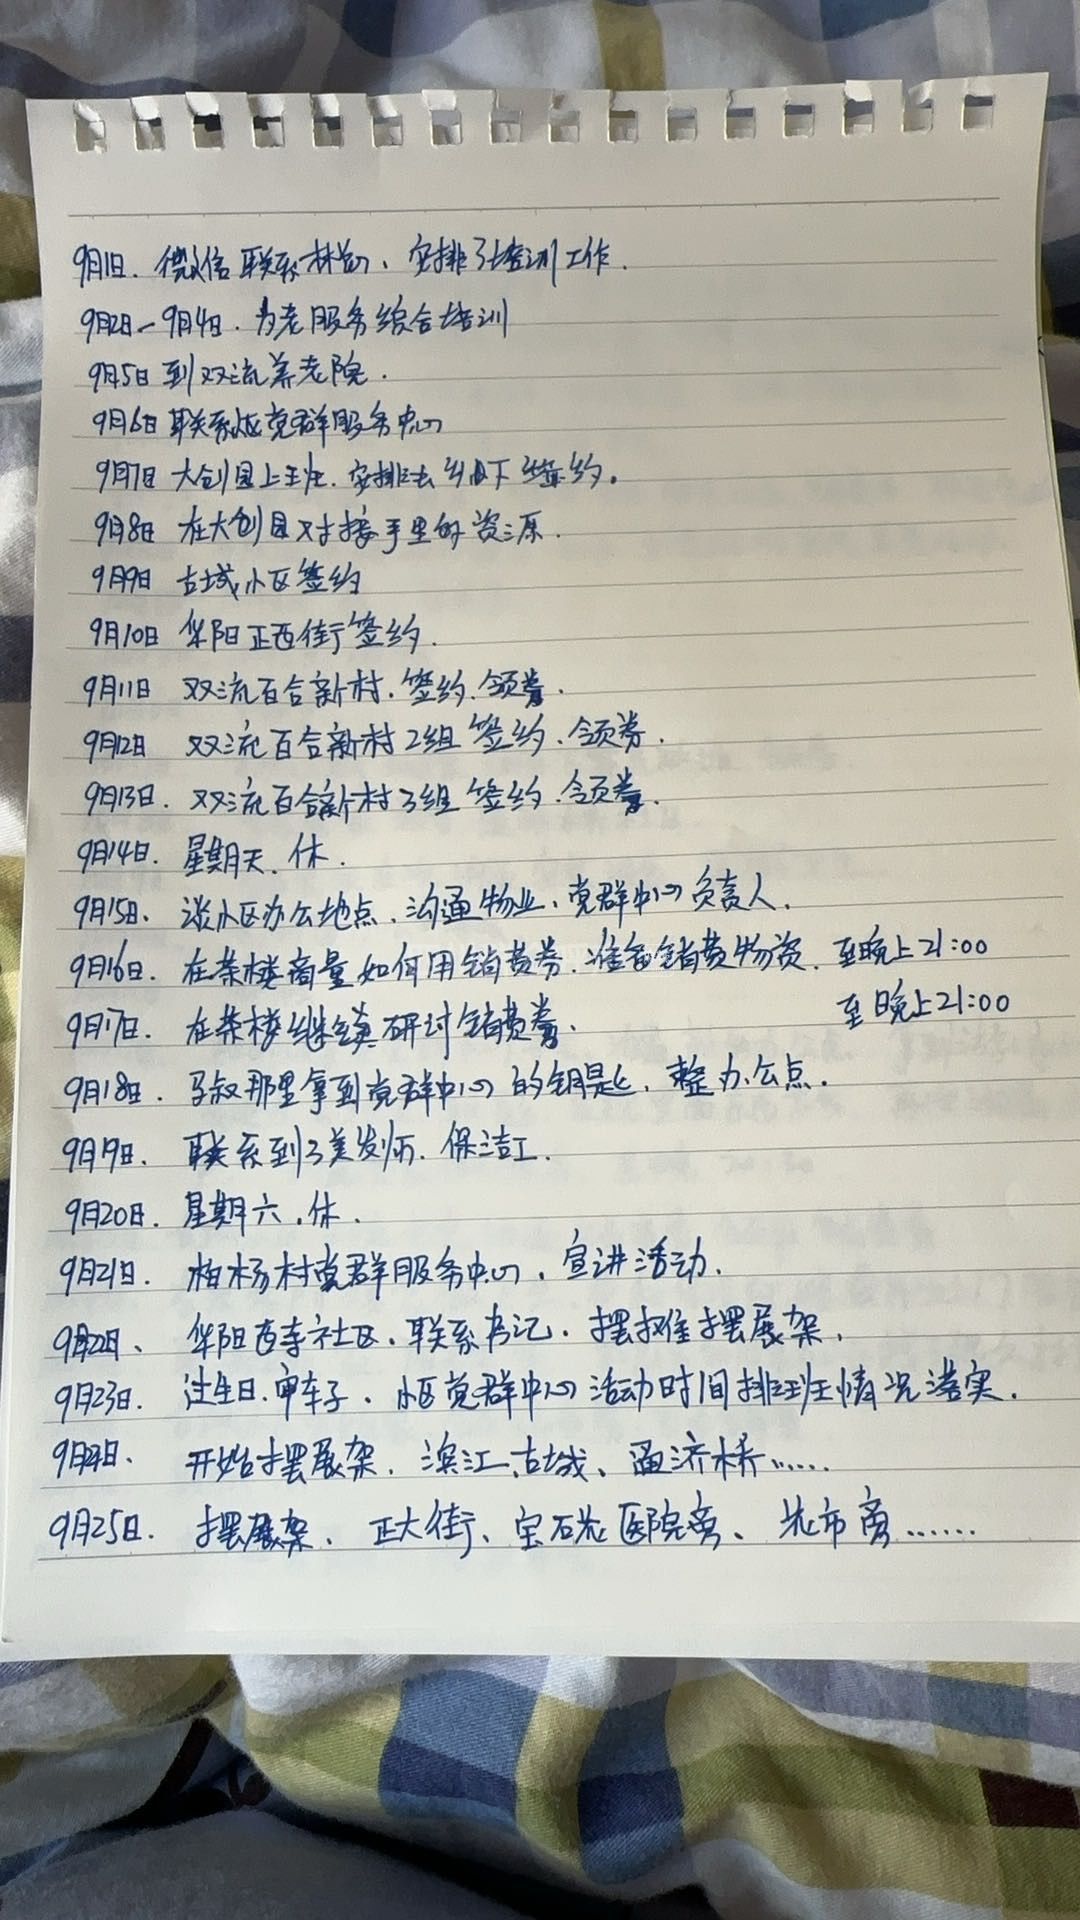 9月1日. 微信联系林总、安排了培训工作.
9月2日-9月4日. 为老服务综合培训
9月5日 到双流养老院.
9月6日 联系小区党群服务中心
9月7日 大创园上班. 安排去乡下签约。
9月8日 在大创园对接手里的资源.
9月9日 古城小区签约
9月10日 华阳正西街签约.
9月11日 双流百合新村. 签约. 领券.
9月12日 双流百合新村2组 签约. 领券.
9月13日. 双流百合新村3组 签约. 领券.
9月14日. 星期天. 休.
9月15日. 谈小区办公地点. 沟通物业、党群中心负责人.
9月16日. 在茶楼商量如何用销费券. 准备销费物资. 至晚上21:00
9月17日. 在茶楼继续研讨销费券. 至晚上21:00
9月18日. 马叔那里拿到党群中心的钥匙, 整办公点.
9月19日. 联系到了美发师. 保洁工.
9月20日. 星期六. 休.
9月21日. 柏杨村党群服务中心, 宣讲活动.
9月22日、 华阳西寺社区. 联系书记. 摆摊摆展架.
9月23日. 过生日. 审车子. 小区党群中心活动时间排班情况落实.
9月24日. 开始摆展架. 滨江、古城、通济桥……
9月25日. 摆展架. 正大街、宝石花医院旁、北市旁……